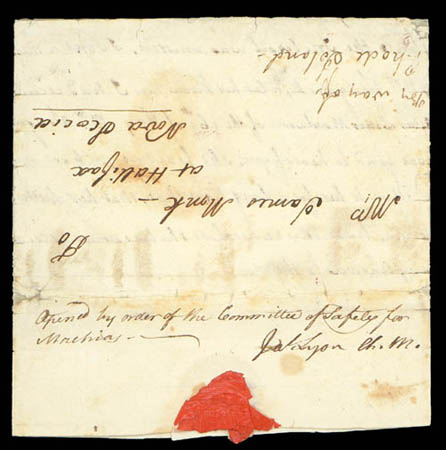 To
Mr. James Monk —
at Hallifax
Nova Scocia
Per way of
Rhode Island
Opened by order of the Committee of Safety for
Machias —
Jas. Lyon Ch. M.